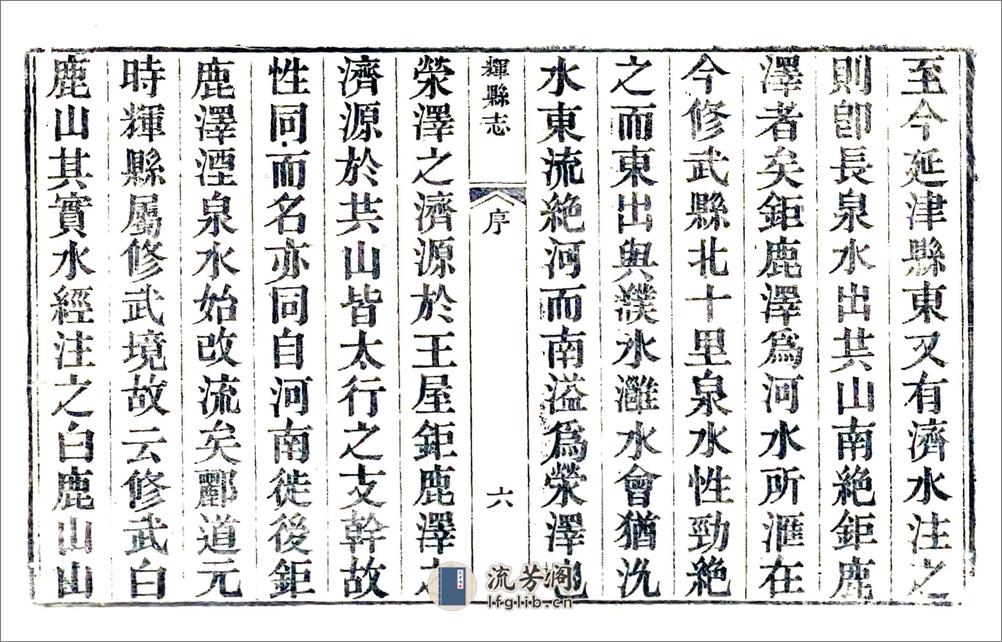 至今延津縣東又有濟水注之
則卽長泉水出共山南絶鉅鹿
澤者矣鉅鹿澤爲河水所滙在
今修武縣北十里泉水性勁絶
之而東出與濮水濰水會猶沇
水東流絶河而南溢爲滎澤也
輝縣志
序
六
滎澤之濟源於王屋鉅鹿澤之
濟源於共山皆太行之支幹故
性同而名亦同自河南徙後鉅
鹿澤湮泉水始改流矣酈道元
時輝縣屬修武境故云修武白
鹿山其實水經注之白鹿山山
流芳阁
lfglib.cn